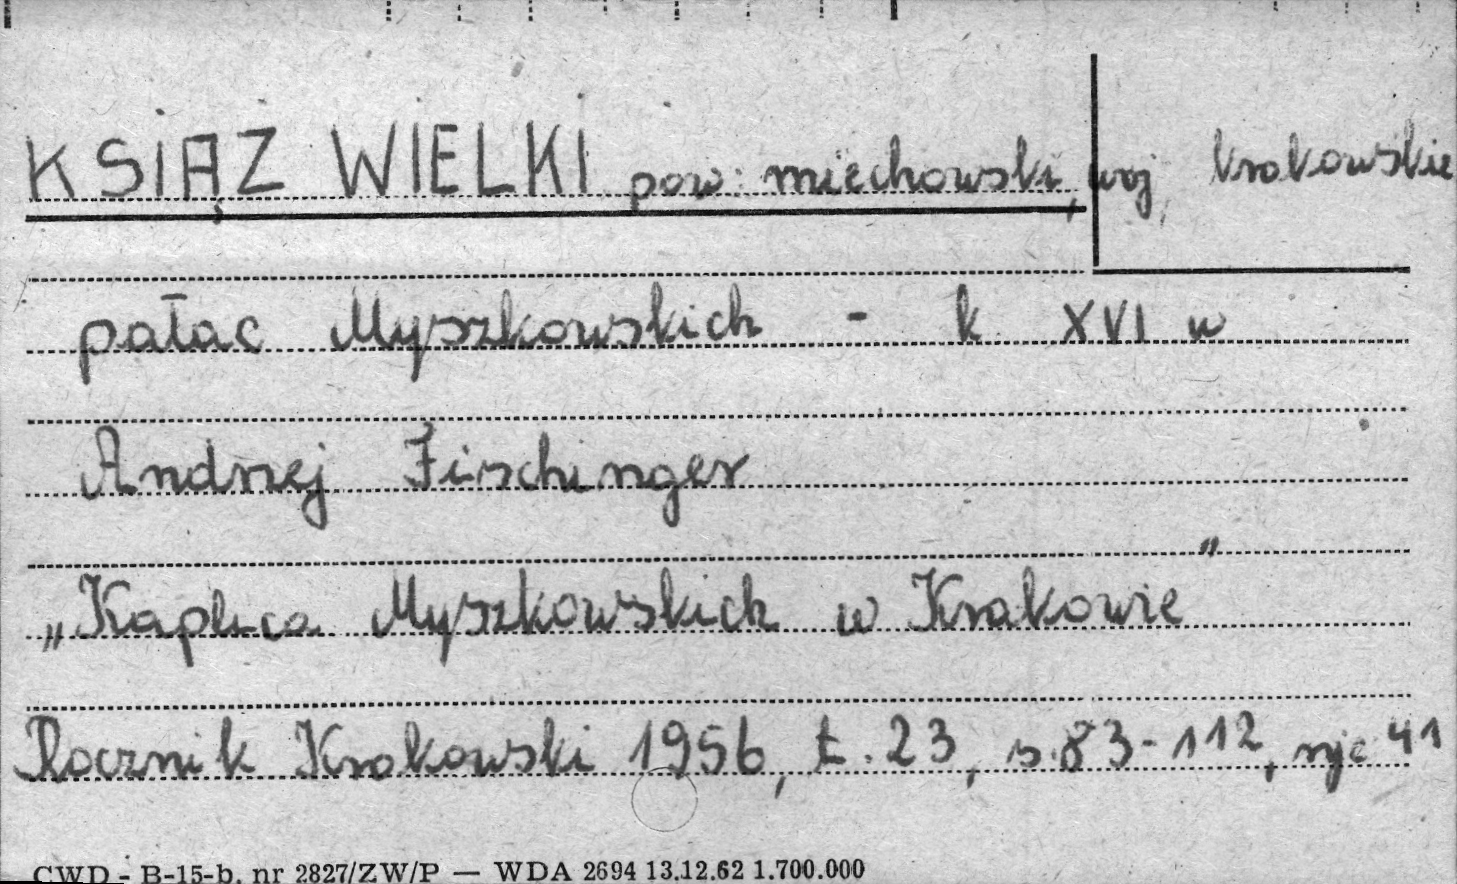 KSIĄŻ WIELKI pow. miechowski, woj. krakowskie
pałac Myszkowskich - k XVI w
Andrzej Fischinger
„Kaplica Myszkowskich w Krakowie"
Rocznik Krakowski 1956, t. 23, s. 83-112, ryc 41
CWD - B-15-b, nr 2827/ZW/P — WDA 2694 13.12.62 1.700.000